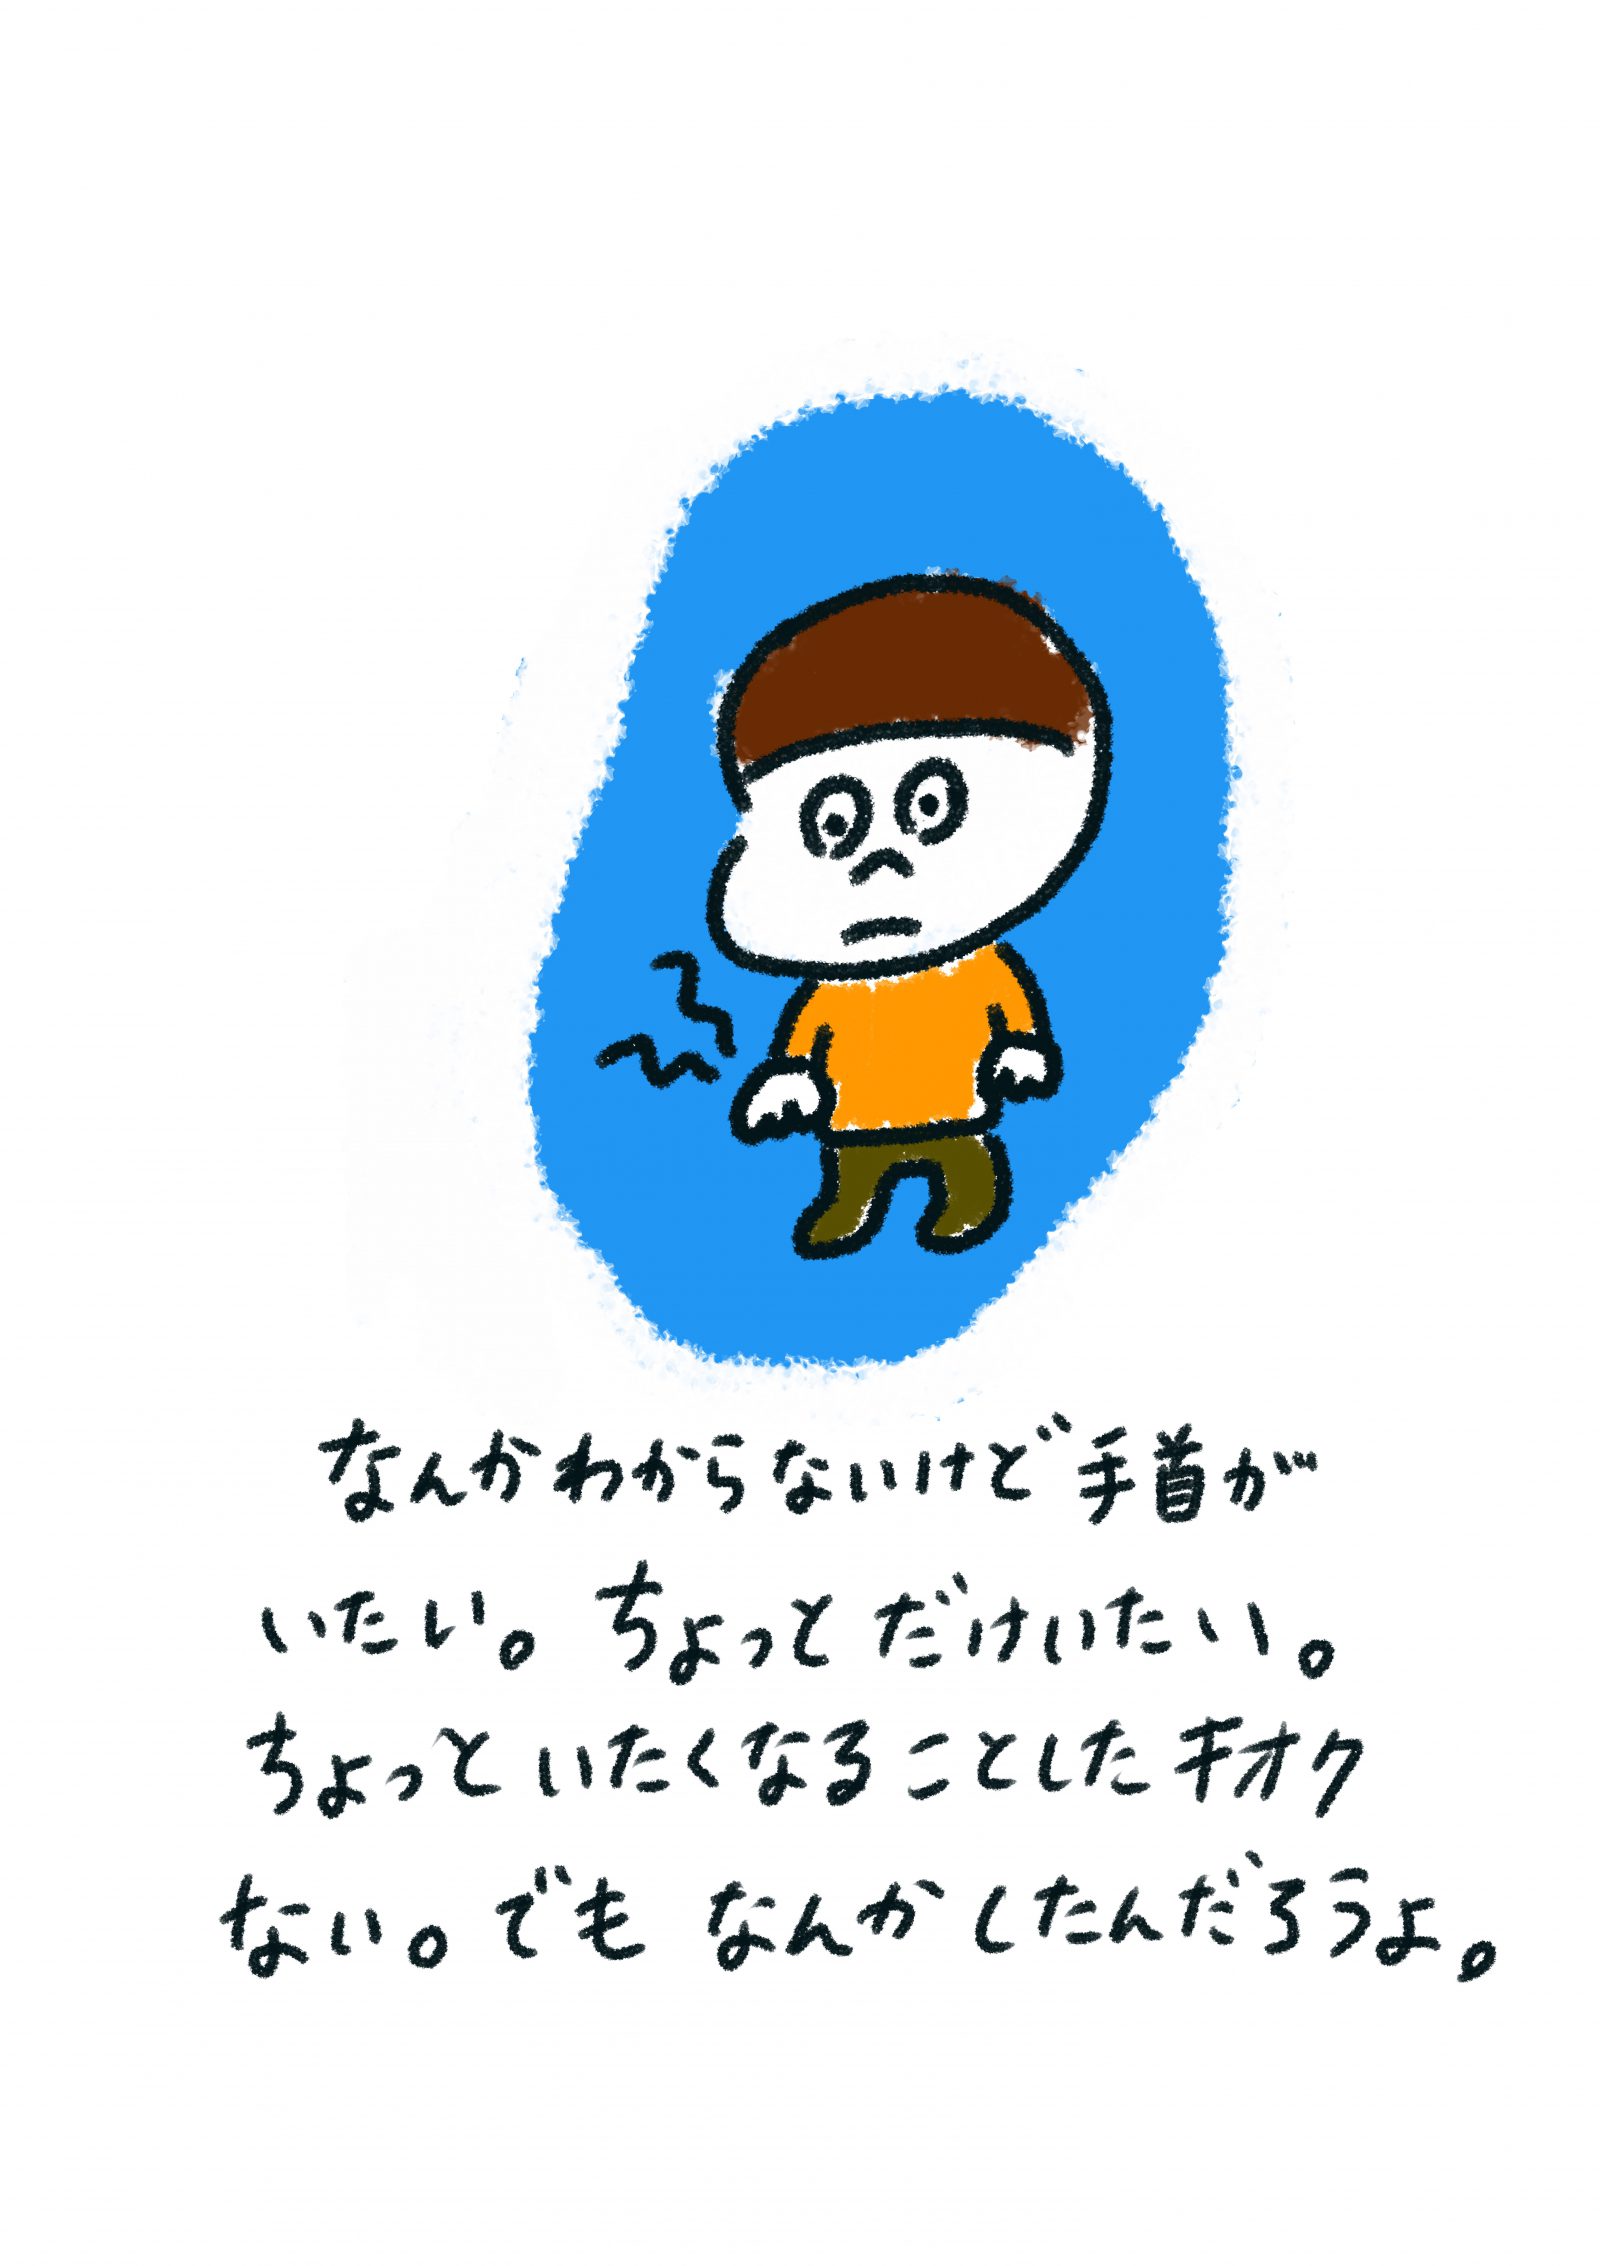 なんかわからないけど手首が
いたい。ちょっとだけいたい。
ちょっといたくなることしたキオク
ない。でもなんかしたんだろうよ。